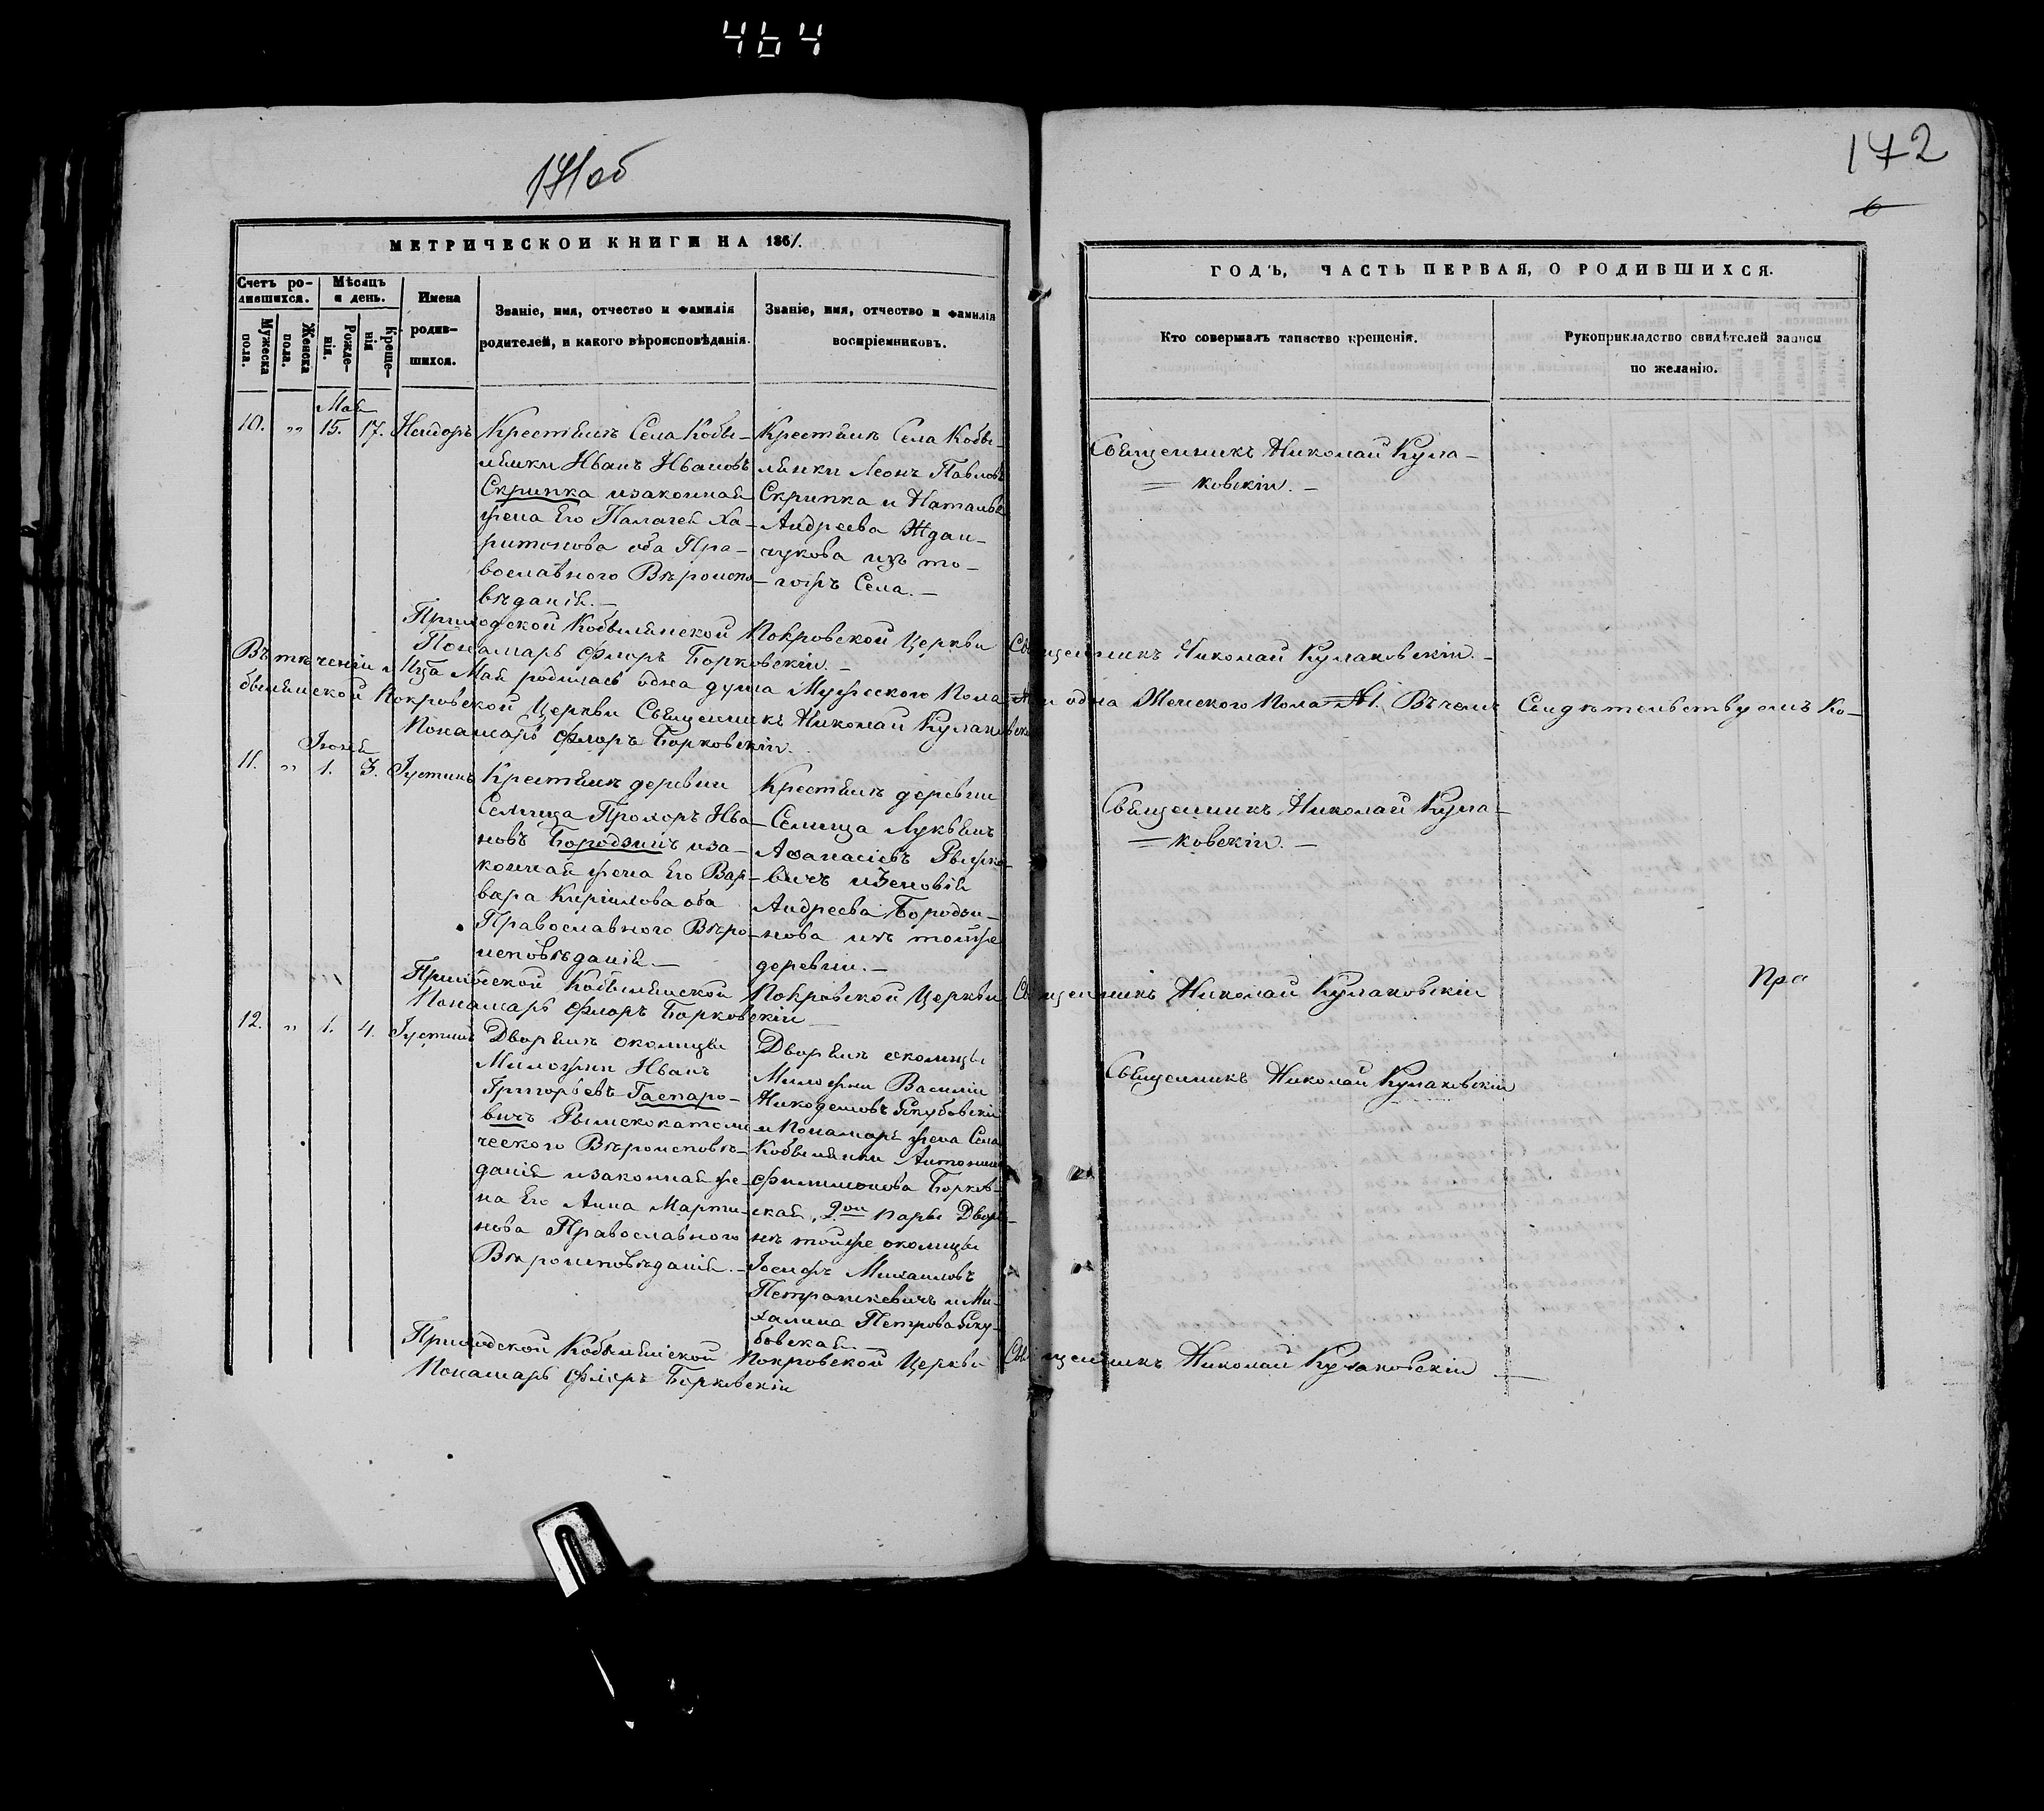 464
171об
172
6
МЕТРИЧЕСКОЙ КНИГИ НА 1861.
ГОДЪ, ЧАСТЬ ПЕРВАЯ, О РОДИВШИХСЯ.
Счетъ ро-
дившихся.
Мужеска
пола.
Женска
пола.
Мѣсяцъ
и день.
Рожде-
нія.
Креще-
нія
Имена
родив-
шихся.
Званіе, имя, отчество и фамилія
родителей, и какого вѣроисповѣданія.
Званіе, имя, отчество и фамилія
воспріемниковъ.
Кто совершалъ таинство крещенія.
Рукоприкладство свидѣтелей записи
по желанію.
Май
10. „ 15. 17. Исидоръ
Крестьянъ Села Кобы-
лянки Иванъ Ивановъ
Скрипка изаконная
жена Его Палагея Ха-
ритонова оба Пра-
вославного Вѣроиспо-
вѣданія.—
Крестьянъ Села Кобы-
лянки Леонъ Павловъ
Скрипка и Наталья
Андреева Ждан-
чукова изъ то-
гожъ Села.—
Священникъ Николай Кула-
=ковскій.—
Приходской Кобылянской Покровской Церкви Священникъ Николай Кулаковскій.—
Понамарь Флоръ Борковскій.—
Въ теченіи Мца Мая родилась одна душа Мужеского Пола и одна Женского Пола №1. Въ чемъ Свидѣтельствуемъ Ко-
былянской Покровской Церкви Священникъ Николай Кулаковскій
Понамарь Флоръ Борковскій.
Іюнь
11. „ 1. 3. Іустинъ
Крестьянъ деревни
Селища Прохоръ Ива-
новъ Бородзинъ иза-
конная жена Его Вар-
вара Кирилова оба
Православного Вѣро-
исповѣданія.—
Крестьянъ деревни
Селища Лукьянъ
Афанасіевъ Рыжко-
вичъ иЗеновія
Андреева Бородзи-
нова изъ тойже
деревни.—
Священникъ Николай Кула-
=ковскій.—
Приходской Кобылянской Покровской Церкви Священникъ Николай Кулаковскій
Понамарь Флоръ Борковскій—
Пра
12. „ 1. 4. Іустинъ
Дворянъ околицы
Милошки Иванъ
Григорьевъ Гаспаро-
вичъ Рымскокатоли
ческого Вѣроисповѣ-
данія изаконная же-
на Его Анна Марти-
нова Православного
Вѣроисповѣданія.—
Дворянъ околицы
Василій
Никодемовъ Якубовскій
и Понамаря жена Села
Кобылянки Антонина
Филимонова Борков-
ская, 2ой пары Дворя-
нъ тойже околицы
Іосифъ Михаиловъ
Петрашкевичъ и Ми-
халина Петрова Яку-
бовская.—
Священникъ Николай Кулаковскій
Приходской Кобылянской Покровской Церкви Священникъ Николай Кулаковскій—
Понамарь Флоръ Борковскій